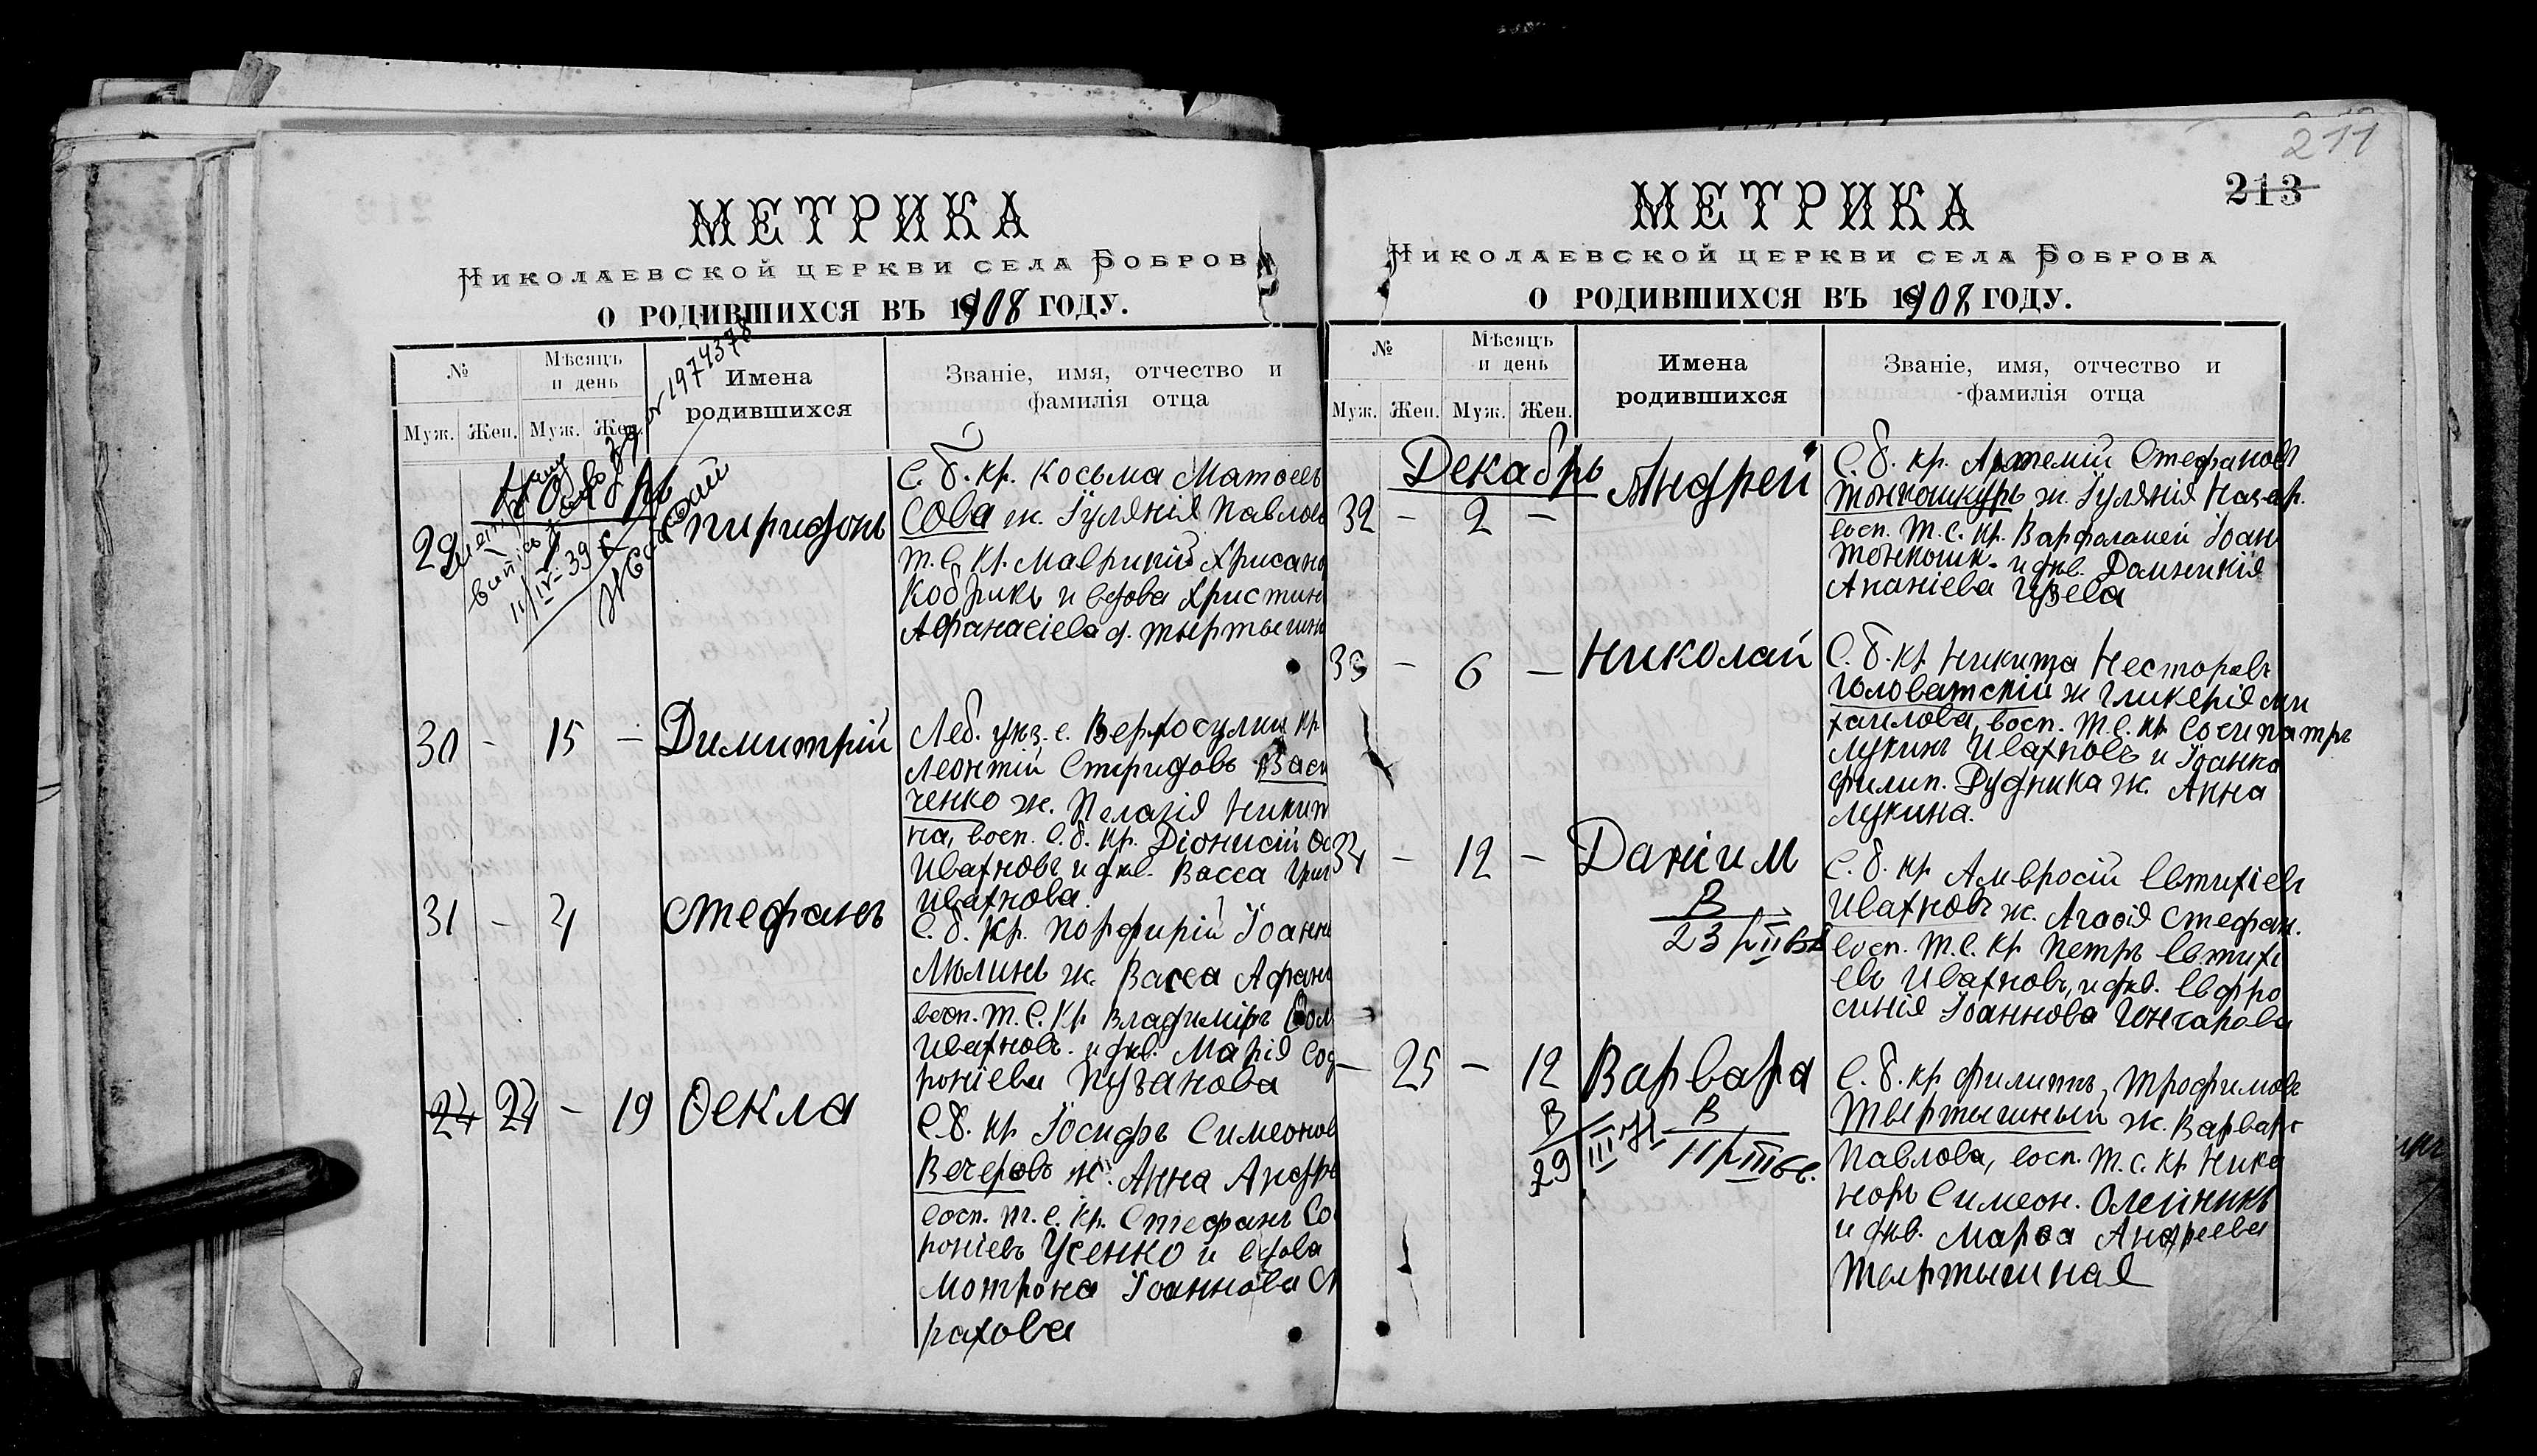 МЕТРИКА
НИКОЛАЕВСКОЙ ЦЕРКВИ СЕЛА БОБРОВ
О РОДИВШИХСЯ ВЪ 1908 ГОДУ.
№
Мѣсяцъ и день
Имена родившихся
Званіе, имя, отчество и фамилія отца
Муж. Жен. Муж. Жен.
№ 1974378
11/IV-39
29
Спиридонъ
С. б. кр. Косьма Матѳеевъ
Сова ж. Іуліянія Павлов
т. с. кр. Маврикій Хрисан
Кобрикъ и вдова Христин
Афанасіева д. Тыртышн
30 - 15 - Димитрій
Леб. уѣз. с. Верхосулки кр.
Леонтій Спиридовъ Васи
ченко ж. Пелагія Никит
на, восп. С. б. кр. Діонисій Ос
Ивахновъ и дѣв. Васса Григ
Ивахнова.
31 - 4 Стефанъ
С. б. кр. Порфирій Іоанн
Мылинъ ж. Васса Афан
восп. т. с. кр. Владиміръ
Ивахновъ и дѣв. Марія Соф
роніева Пузанова
24 24 - 19 Ѳекла
С. б. кр. Іосифъ Симеонов
Вечеровъ ж. Анна Андре
восп. т. с. кр. Стефанъ Со
роніевъ Усенко и вдова
Мотрона Іоаннова
рахова
211
213
МЕТРИКА
НИКОЛАЕВСКОЙ ЦЕРКВИ СЕЛА БОБРОВА
О РОДИВШИХСЯ ВЪ 1908 ГОДУ.
№
Мѣсяцъ и день
Имена родившихся
Званіе, имя, отчество и фамилія отца
Муж. Жен. Муж. Жен.
Декабрь
32 - 2 - Андрей
С. б. кр. Артемій Стефановъ
Тонкошкуръ ж. Іуліянія Назар.
восп. т. с. кр. Варфаламей Іоан
Тонкошк. и дѣв. Домникія
Ананіева
33 - 6 - Николай
С. б. кр. Никита Несторовъ
Головатскій ж Гликерія Ми
хаилова, восп. т. с. кр. Сосипатръ
Лукинъ Ивахновъ и Іоанна
Филип. Рудника ж. Анна
Лукина.
34 - 12 - Даніил
В
23/III
С. б. кр Амвросій Евтихіевъ
Ивахновъ ж. Агаѳія Стефан.
восп. т. с. кр Петръ Евтихі
евъ Ивахновъ, и дѣв. Евфро
синія Іоаннова Гончарова
- 25 - 12 Варвара
В
29/III
В
11/III
С. б. кр Филиппъ Трофимовъ
Тыртышный ж. Варвара
Павлова, восп. т. с. кр Ника
норъ Симеон. Олейникъ
и дѣв. Марѳа Андреева
Тыртышная